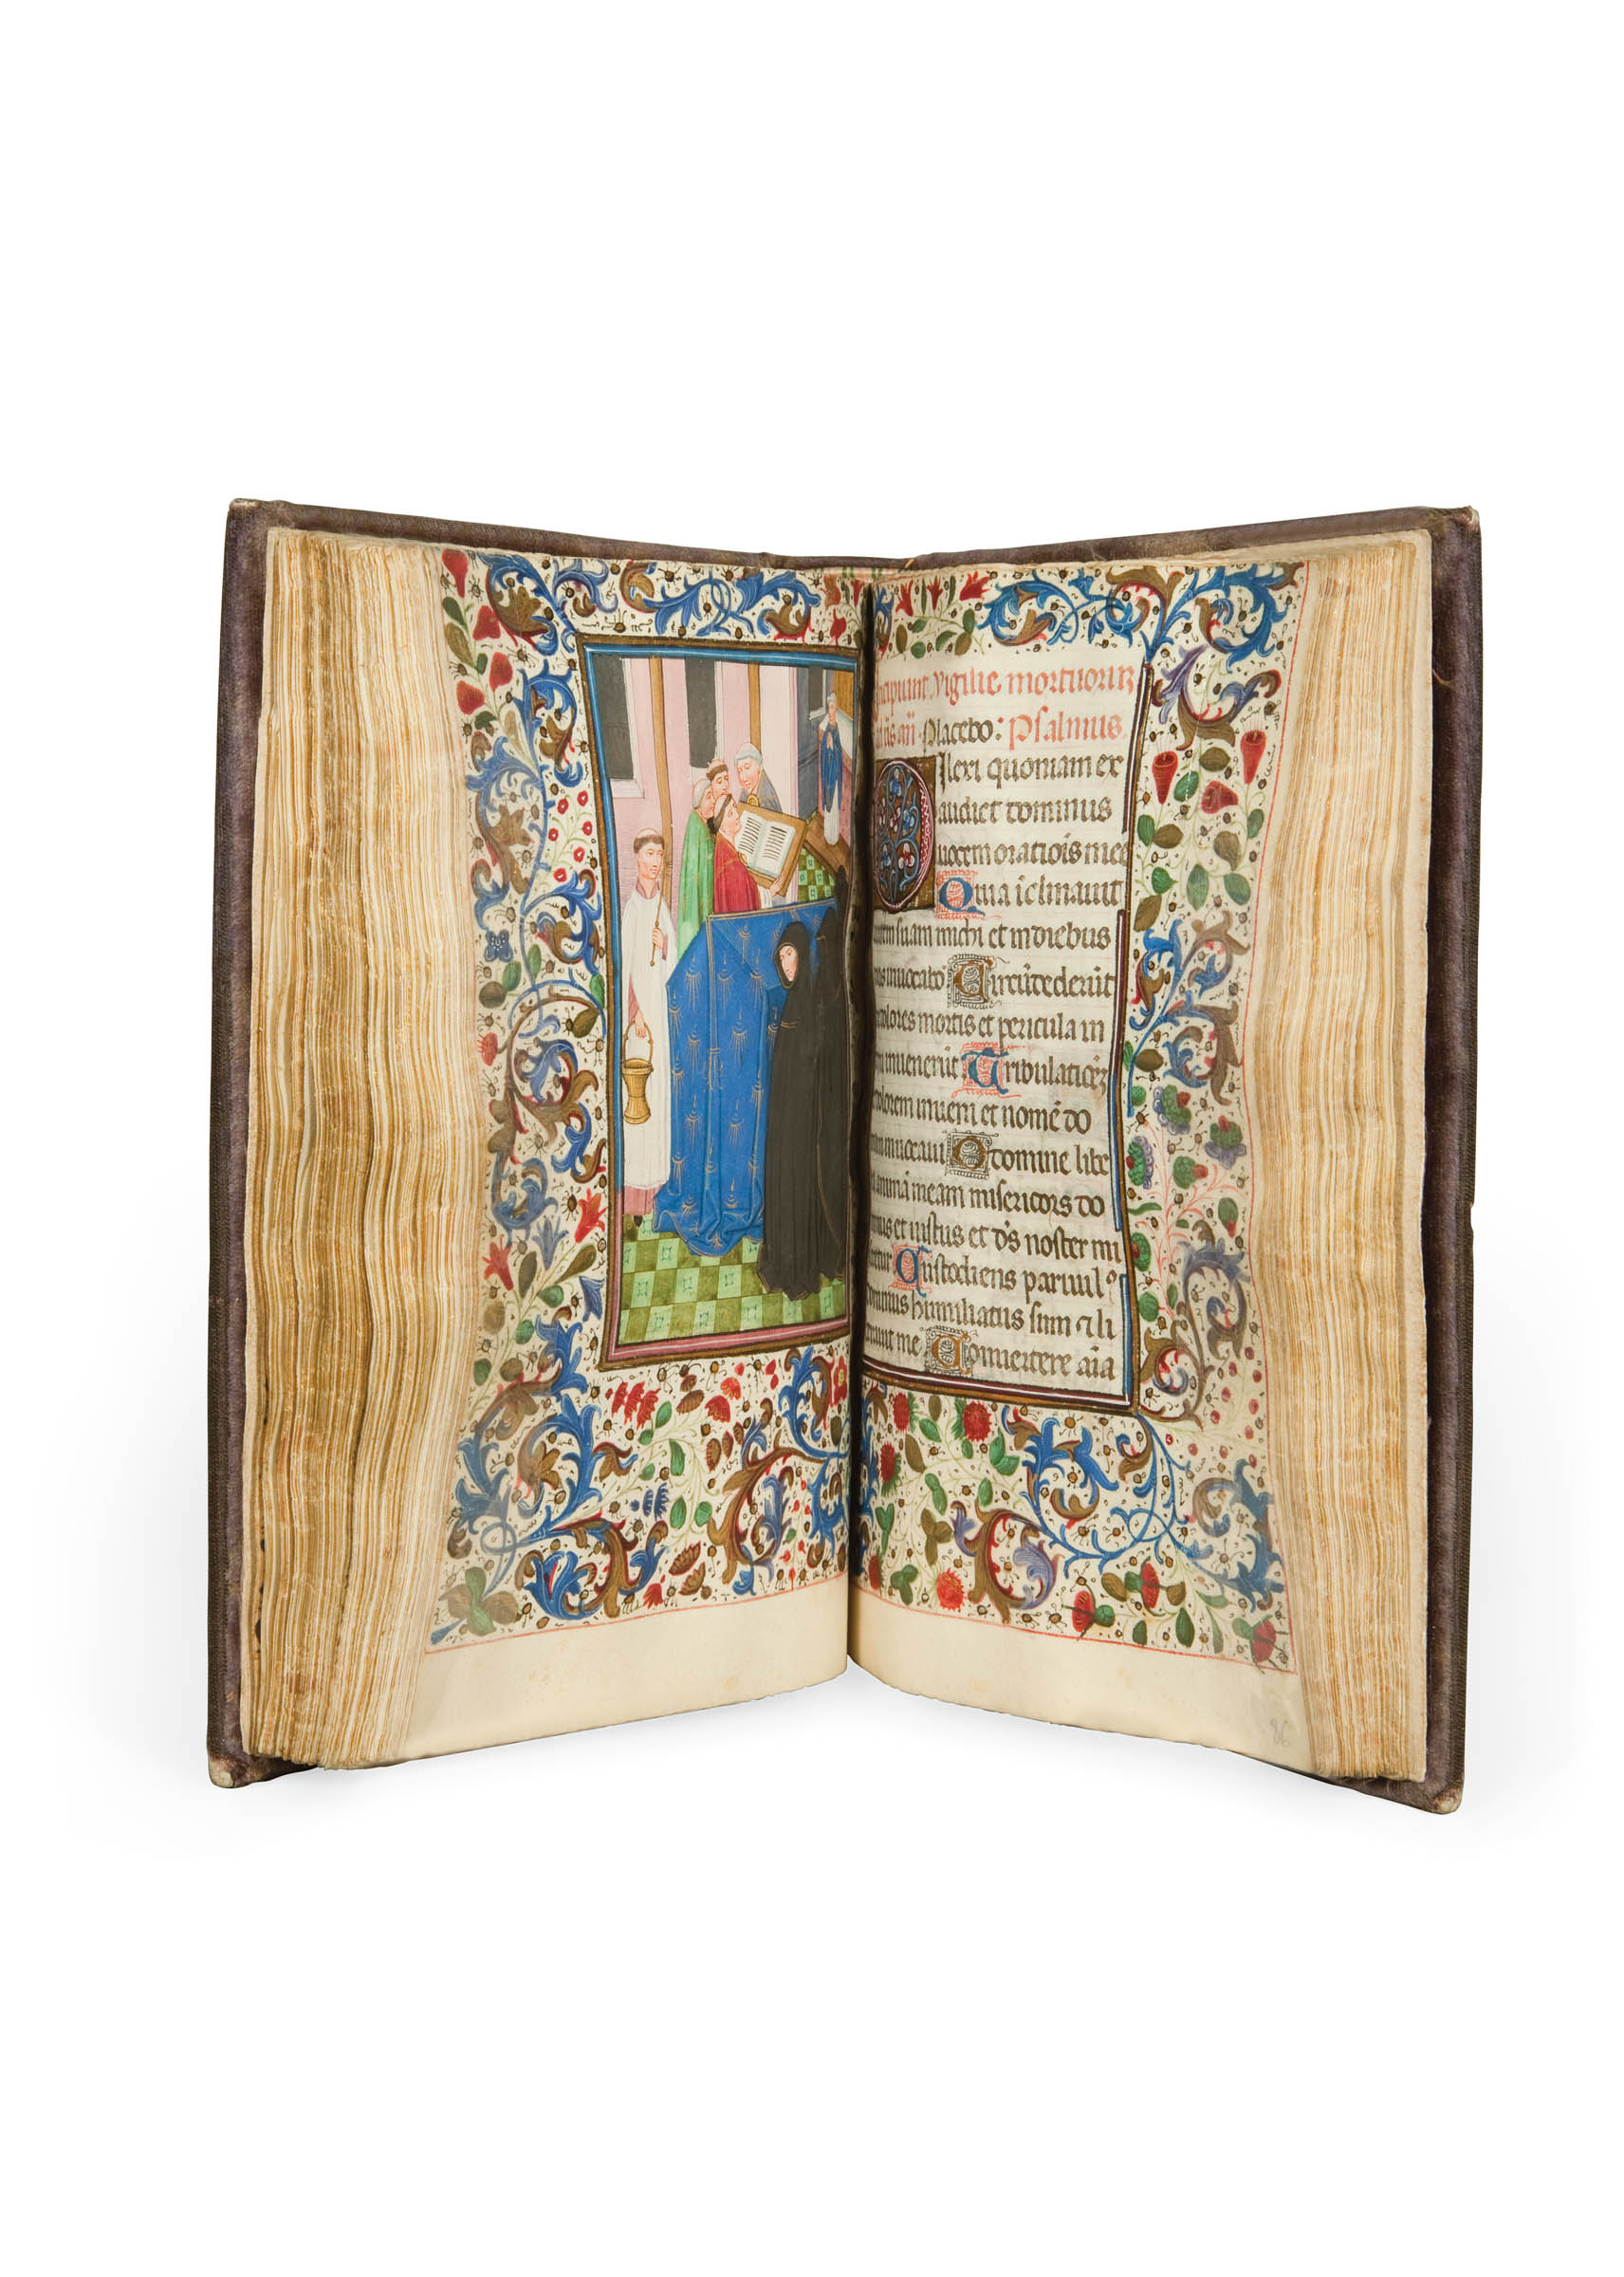 ncipiunt vigilie mortuorū
añ Placebo: Psalmus.
Dilexi quoniam ex
audiet dominus
uocem oratiōis mee
Quia īclinauit
suam michi et in diebus
inuocabo Circūdederūt
dolores mortis et pericula in
inuenerūt Tribulationē
dolorem inueni et nomē do
inuocaui O domine libe
animā meam misericors do
et iustus et dn̄s noster mi
Custodiens paruulꝰ
dominus humiliatus sum ⁊ li
me Conuertere aīa
86